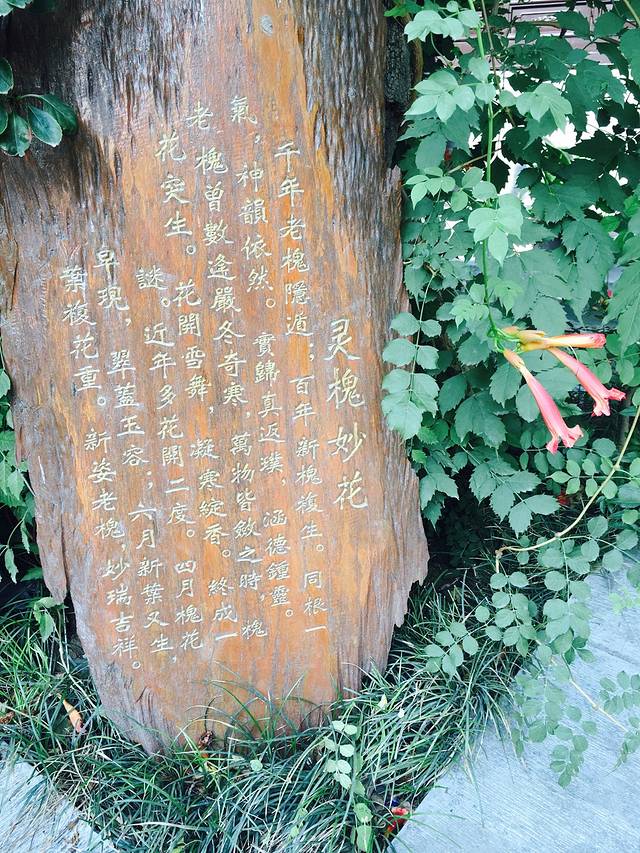 灵槐妙花
千年老槐隱遁；百年新槐複生。同根一
氣，神韻依然。實歸真返璞，涵德鍾靈。
老槐曾數逢嚴冬奇寒，萬物皆斂之時，槐
花突生。花開雪舞，凝寒綻香。終成一
謎。近年多花開二度。四月槐花
早現，翠蓋玉容；六月新葉又生，
葉複花重。新姿老槐，妙瑞吉祥。